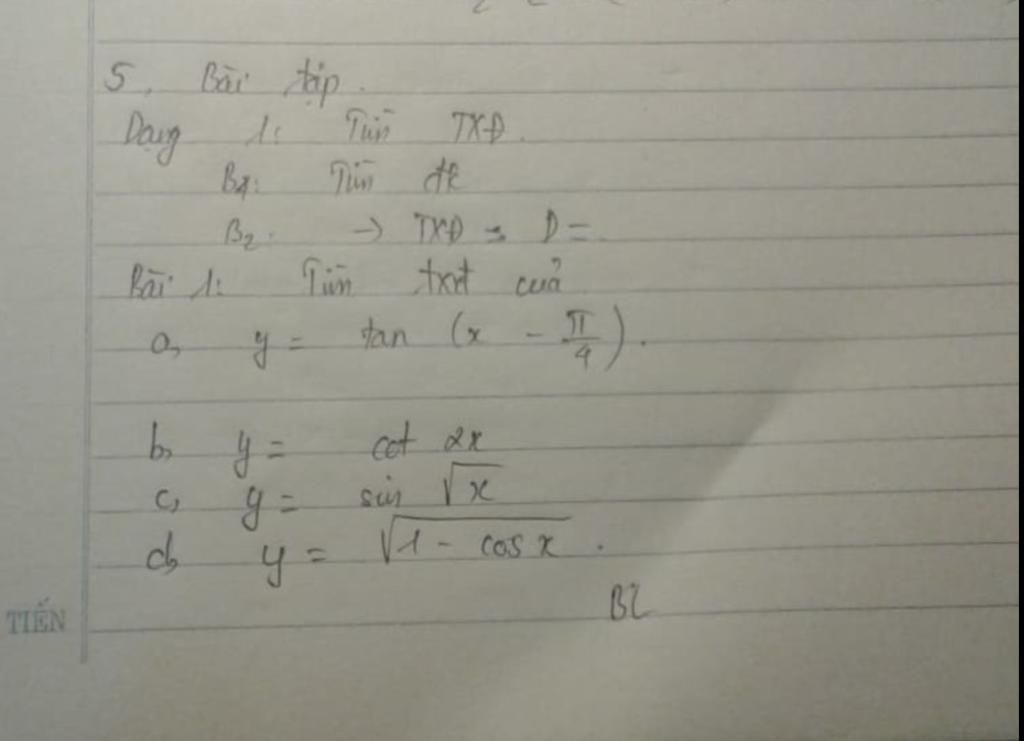 5, Bài tập.
Dạng 1: Tìm TXĐ.
B1: Tìm đk
B2. → TXĐ: D=.
Bài 1: Tìm txđ của
a, y = tan (x - π/4).
b, y = cot 2x
c, y = sin √x
d, y = √(1 - cos x).
BL
TIẾN